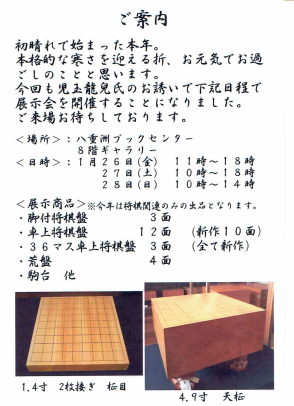 ご案内
初晴れで始まった本年。
本格的な寒さを迎える折、お元気でお過
ごしのことと思います。
今回も児玉龍兒氏のお誘いで下記日程で
展示会を開催することになりました。
ご来場お待ちしております。
＜場所＞：八重洲ブックセンター
８階ギャラリー
＜日時＞：１月２６日(金) １１時～１８時
２７日(土) １０時～１８時
２８日(日) １０時～１４時
＜展示商品＞※今年は将棋関連のみの出品となります。
・脚付将棋盤 ３面
・卓上将棋盤 １２面 (新作１０面)
・３６マス卓上将棋盤 ３面 (全て新作)
・荒盤 ４面
・駒台 他
1.4寸 2枚接ぎ 柾目
4.9寸 天柾